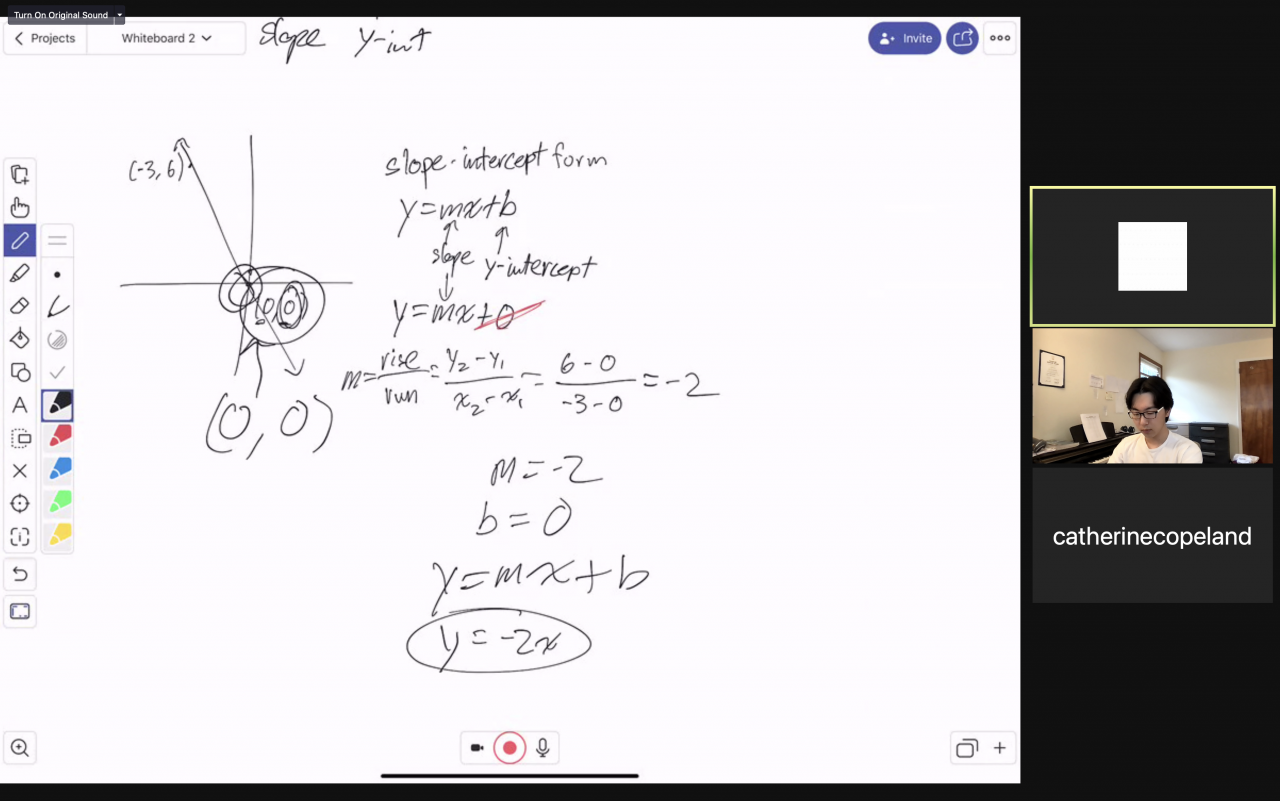 Turn On Original Sound
Projects
Whiteboard 2
slope y-int
Invite
(-3, 6)
slope-intercept form
y=mx+b
slope y-intercept
(0, 0)
y=mx+0
m=rise/run = y₂-y₁/x₂-x₁ = 6-0/-3-0 = -2
(0, 0)
m=-2
b=0
y=mx+b
y=-2x
A
catherinecopeland